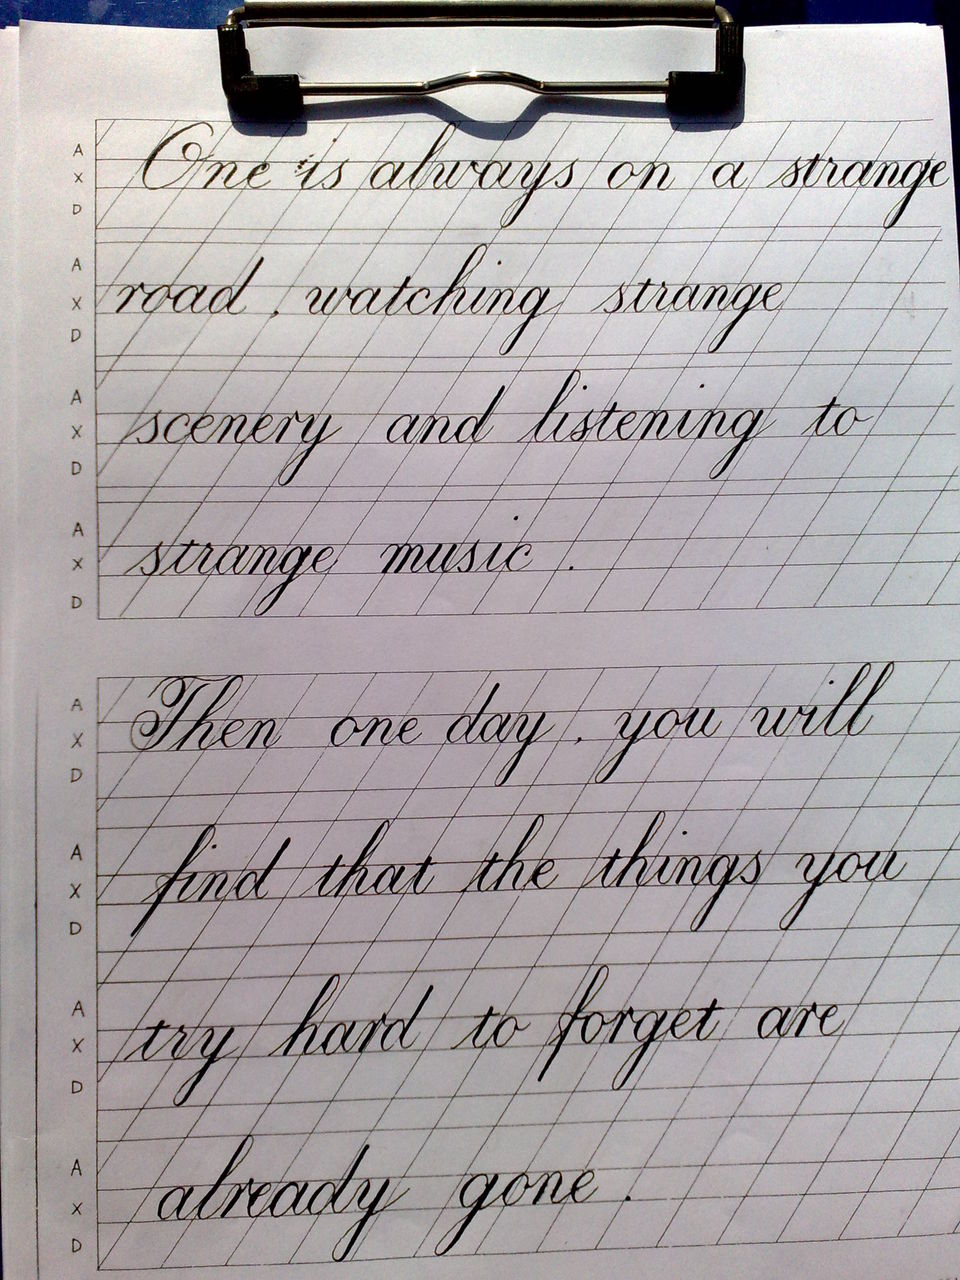 A
X
D
One is always on a strange
A
X
D
road , watching strange
A
X
D
scenery and listening to
A
X
D
strange music .
A
X
D
Then one day , you will
A
X
D
find that the things you
A
X
D
try hard to forget are
A
X
D
already gone .